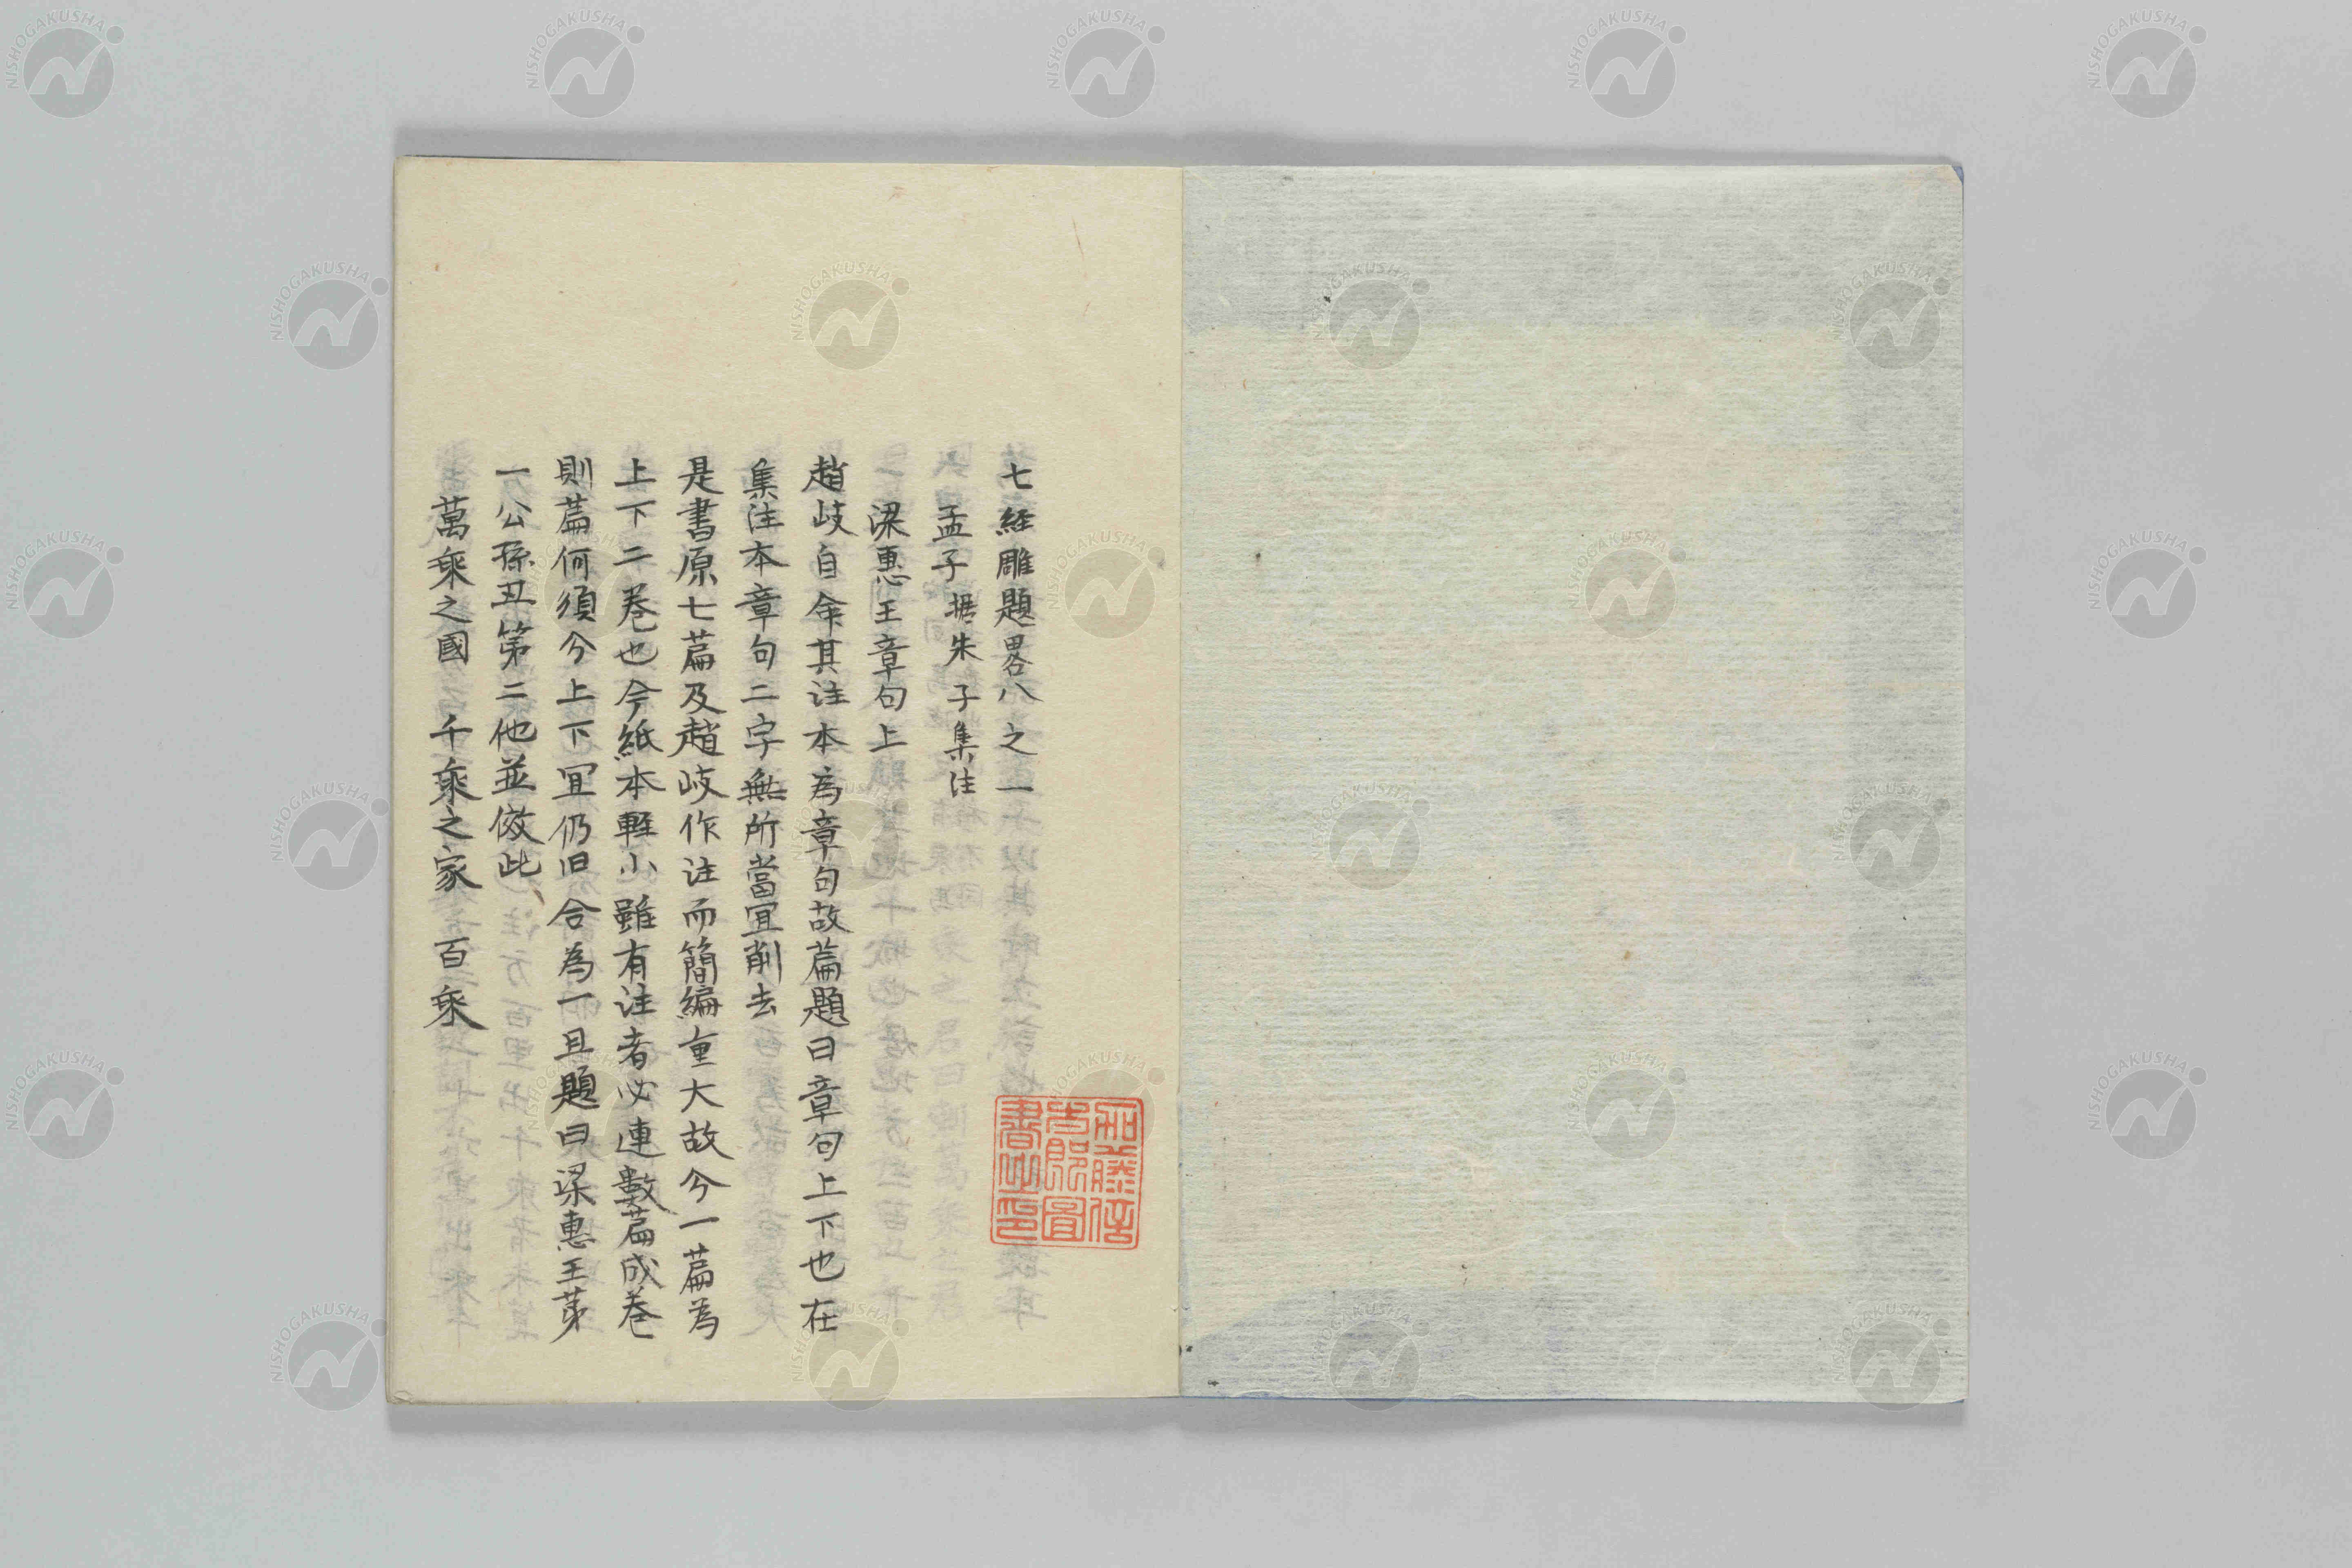 七経雕題畧八之一
孟子 据朱子集注
梁惠王章句上
趙岐自命其注本為章句故篇題曰章句上下也在
集注本章句二字無所當宜削去
是書原七篇及趙岐作注而簡編重大故分一篇為
上下二巻也今紙本軽小雖有注者必連數篇成巻
則篇何須分上下冝仍旧合為一且題曰梁惠王第
一公孫丑第二他並倣此
萬乘之國 千乘之家 百乘
NISHOGAKUSHA